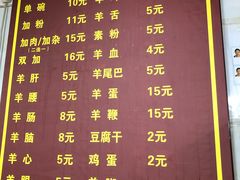 单碗 10元 羊舌 5元
加粉 11元 素粉 5元
加肉/加杂 15元 羊血 4元
(二选一)
双加 16元 羊尾巴 5元
羊肝 5元 羊蛋 15元
羊腰 5元 羊鞭 15元
羊肠 8元 豆腐干 2元
羊脑 8元 鸡蛋 2元
羊心 5元